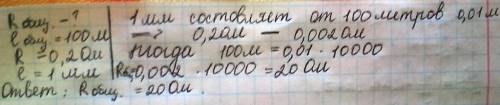 Rобщ. - ?
ℓобщ = 100м
R = 0,2Ом
ℓ = 1мм
1мм состовляет от 100литров 0,01м
—? 0,2Ом — 0,002Ом
Тогда 100м = 0,01 · 10000
R = 0,002 · 10000 = 20Ом
Ответ: Rобщ. = 20Ом.